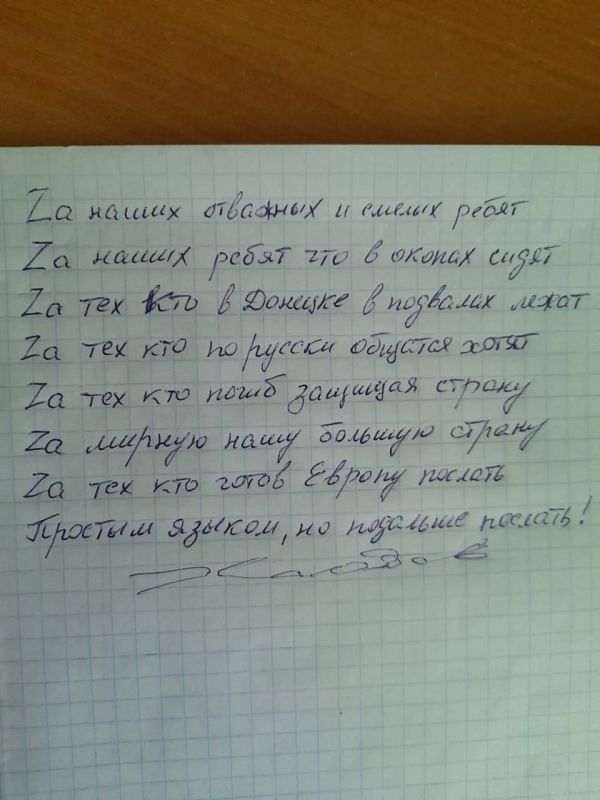 Zа наших отважных и смелых ребят
Zа наших ребят что в окопах сидят
Zа тех кто в Донецке в подвалах лежат
Zа тех кто по русски общатся хотят
Zа тех кто погиб защищая страну
Zа мирную нашу большую страну
Zа тех кто готов Европу послать
Простым языком, но подальше послать!